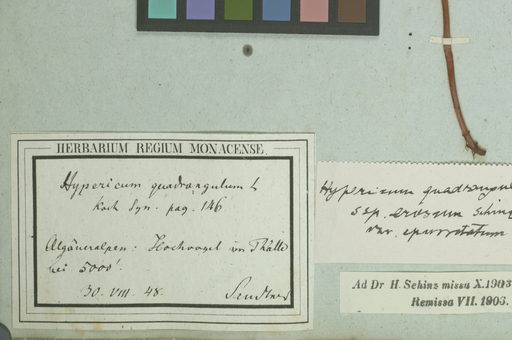 HERBARIUM REGIUM MONACENSE.
Hypericum quadrangulum L
Koch Syn. pag. 146
Algäueralpen: Hochvogel im Thälle
bei 5000'
30. VIII. 48. Sendtner
Hypericum quadrangul
ssp. erosum Schinz
var. epunctatum
Ad Dr H. Schinz missa X.1903
Remissa VII. 1906.